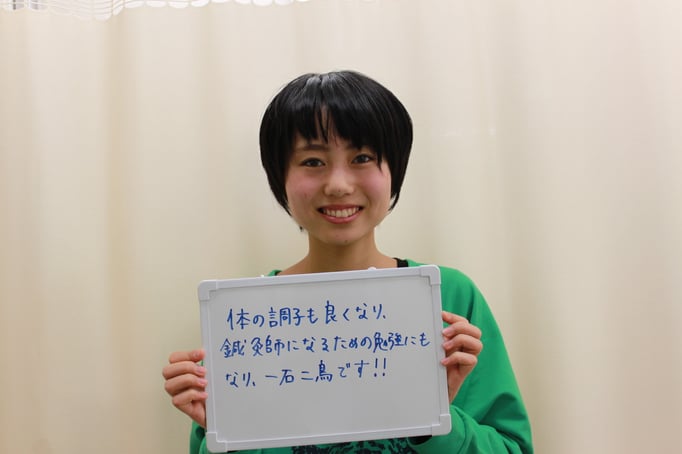 体の調子も良くなり、
鍼灸師になるための勉強にも
なり、一石二鳥です!!